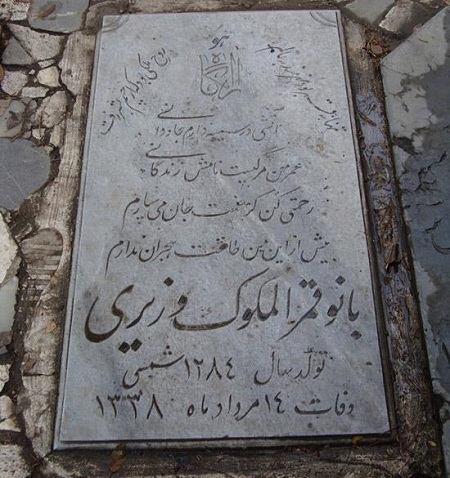 هو
آرامگاه
آتشی در سینه دارم جاودانی
عمر من مرگیست نامش زندگانی
رحمتی کن کز غمت جان می سپارم
بیش از این من طاقت هجران ندارم
بانو قمر الملوک وزیری
تولد بسال ۱۲۸۴ شمسی
وفات ۱۴ مرداد ماه ۱۳۳۸